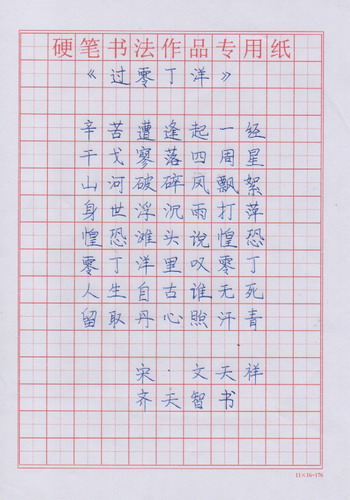 硬笔书法作品专用纸
《过零丁洋》
辛苦遭逢起一经
干戈寥落四周星
山河破碎风飘絮
身世浮沉雨打萍
惶恐滩头说惶恐
零丁洋里叹零丁
人生自古谁无死
留取丹心照汗青
宋·文天祥
齐天智书
11×16=176